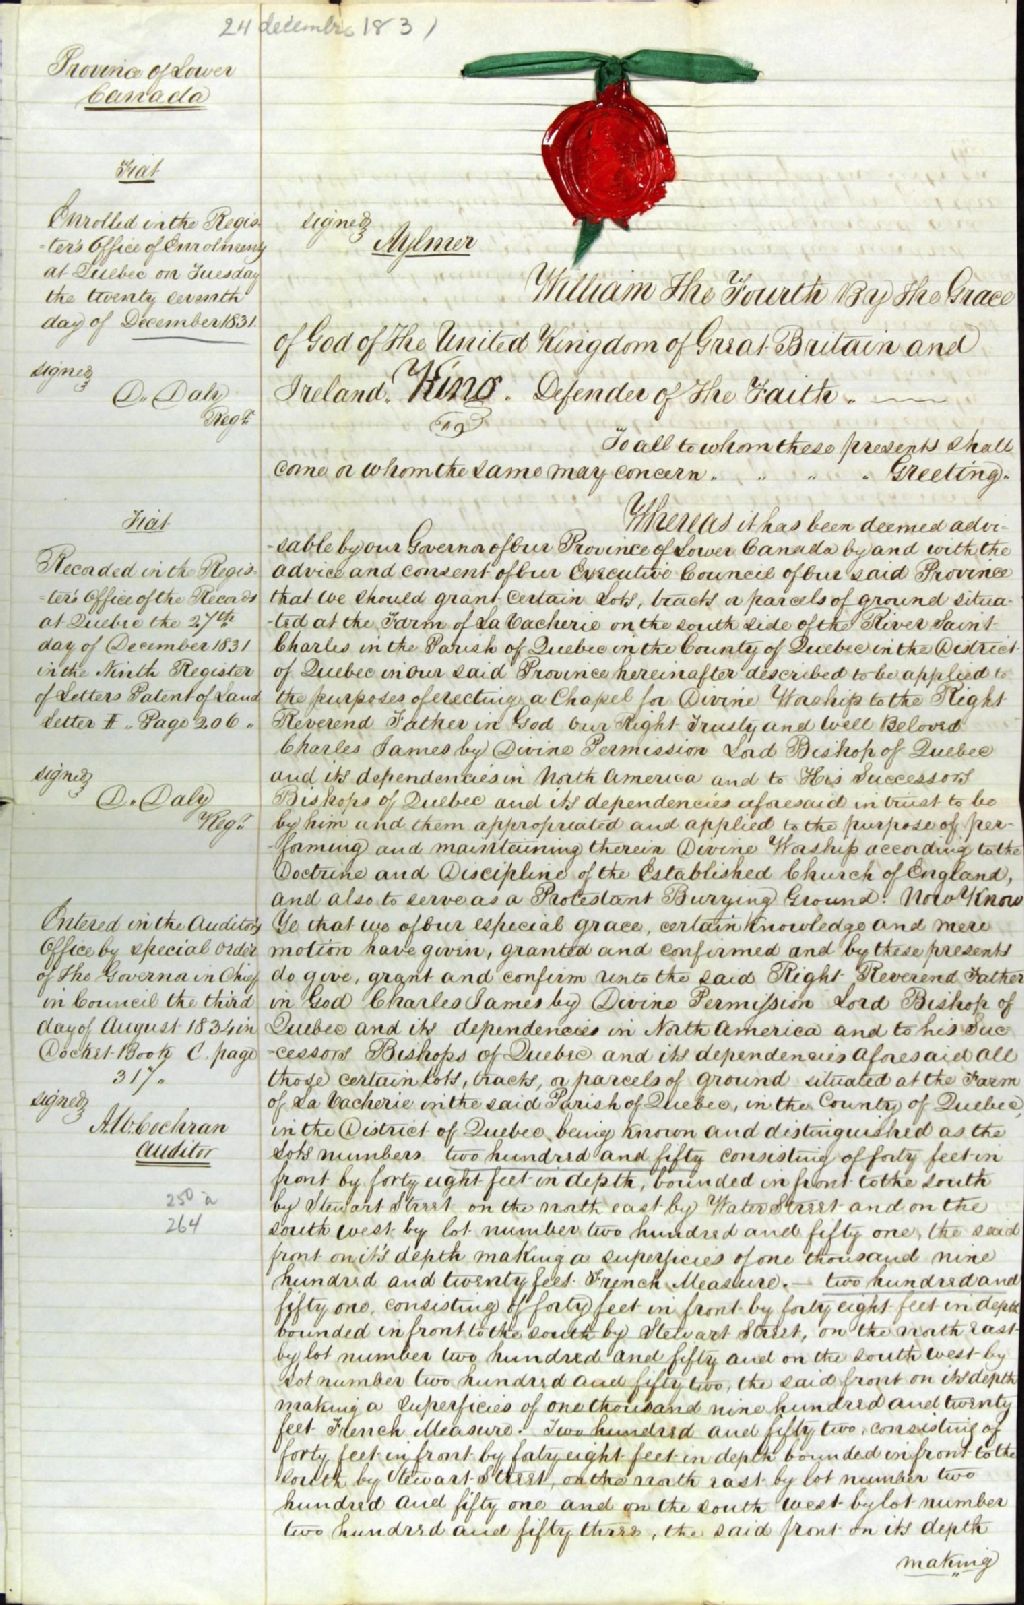 24 decembre 1831
Province of Lower
Canada
Fiat
Enrolled in the Regis-
-ter's Office of Enrolments
at Quebec on Tuesday
the twenty seventh
day of December 1831
signed
D. Daly
Regr.
Fiat
Recorded in the Regis-
-ter's Office of the Records
at Quebec the 27th
day of December 1831
in the Ninth Register
of Letters Patent of Land
Letter I. Page 206.
signed
D. Daly
Regr.
Entered in the Auditors
Office by special order
of the Governor in Chief
in Council the third
day of August 1834 in
Docket Book C. page
317.
signed
A.W. Cochran
Auditor
250 à
264
signed
Aylmer
William The Fourth By The Grace
of God of The United Kingdom of Great Britain and
Ireland. King. Defender of The Faith.
To all to whom these presents shall
come or whom the same may concern. " " " Greeting.
Whereas it has been deemed advi-
-sable by our Governor of Our Province of Lower Canada by and with the
advice and consent of Our Executive Council of Our said Province
that we should grant certain Lots, tracts or parcels of ground situa-
-ted at the Farm of La Vacherie on the south side of the River Saint
Charles in the Parish of Quebec in the County of Quebec in the District
of Quebec in our said Province hereinafter described to be applied to
the purposes of erecting a Chapel for Divine Worship to the Right
Reverend Father in God Our Right Trusty and Well Beloved
Charles James by Divine Permission Lord Bishop of Quebec
and its dependencies in North America and to His Successors
Bishops of Quebec and its dependencies aforesaid in trust to be
by him and them appropriated and applied to the purpose of per-
-forming and maintaining therein Divine Worship according to the
Doctrine and Discipline of the Established Church of England,
and also to serve as a Protestant Burying Ground. Now Know
Ye that we of our especial grace, certain knowledge and mere
motion have given, granted and confirmed and by these presents
do give, grant and confirm unto the said Right Reverend Father
in God Charles James by Divine Permission Lord Bishop of
Quebec and its dependencies in North America and to his Suc
-cessors Bishops of Quebec and its dependencies aforesaid all
those certain lots, tracts, or parcels of ground situated at the Farm
of La Vacherie in the said Parish of Quebec, in the County of Quebec,
in the District of Quebec, being known and distinguished as the
Lots numbers two hundred and fifty consisting of forty feet in
front by forty eight feet in depth, bounded in front to the south
by Stewart Street on the north east by Water Street and on the
south west by lot number two hundred and fifty one, the said
front on it's depth making a superficies of one thousand nine
hundred and twenty feet French Measure. — two hundred and
fifty one, consisting of forty feet in front by forty eight feet in depth
bounded in front to the south by Stewart Street, on the north east
by lot number two hundred and fifty and on the south west by
lot number two hundred and fifty two, the said front on its depth
making a superficies of one thousand nine hundred and twenty
feet French Measure. Two hundred and fifty two, consisting of
forty feet in front by forty eight feet in depth bounded in front to the
south, by Stewart Street, on the north east by lot number two
hundred and fifty one and on the south west by lot number
two hundred and fifty three, the said front on its depth
making